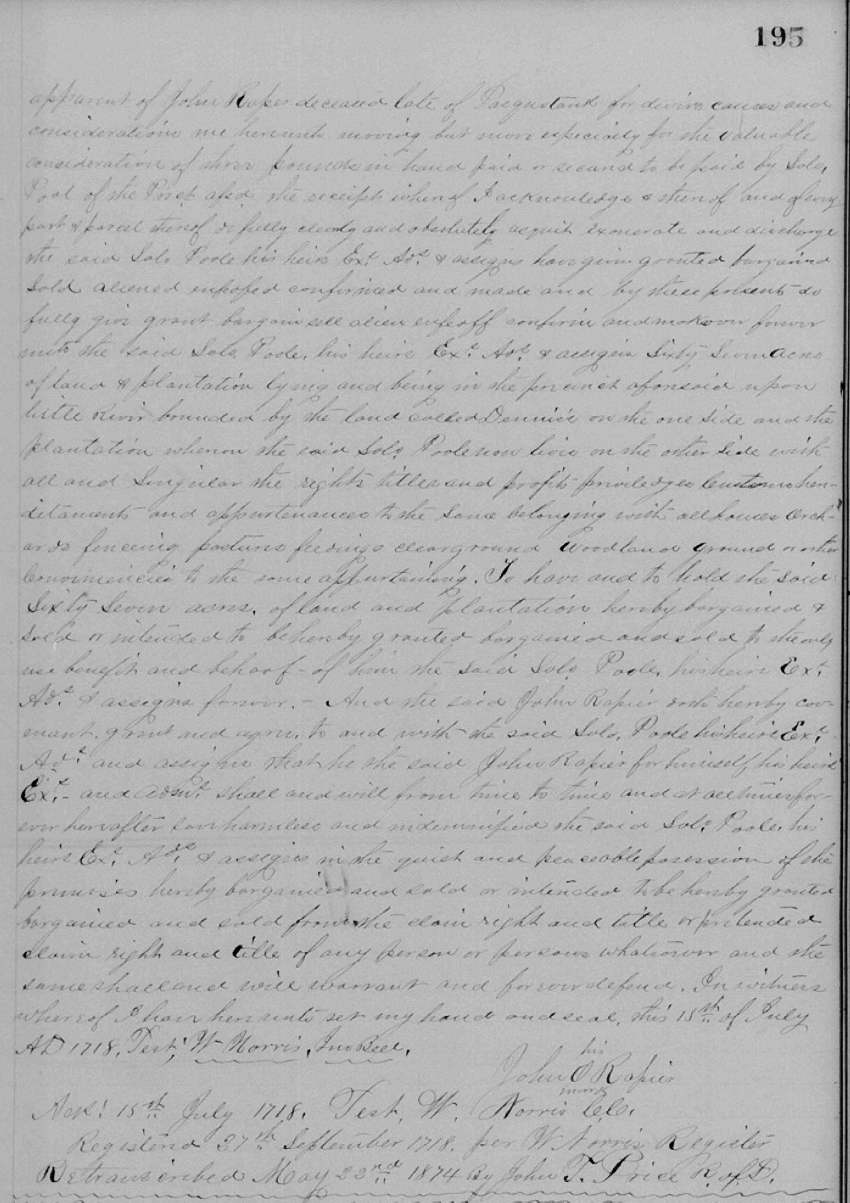 195
apparent of John Rapes deceased late of Pasquotank for divers causes and
considerations me hereunto moving but more especially for the valuable
consideration of three pounds in hand paid or secured to be paid by Solo.
Pool of the Porct afsd. the receipt whereof I acknowledge & thereof and of every
part & parcel thereof do fully clearly and absolutely acquit exonerate and discharge
the said Solo Poole his heirs Exr. Adr. & assigns have given granted bargained
Sold aliened enfeofed confirmed and made and by these presents do
fully give grant bargain sell alien enfeoff confirm and make over forever
unto the said Solo. Poole, his heirs Exr. Adr. & assigns Sixty Seven Acres
of land & plantation lying and being in the precinct aforesaid upon
little River bounded by the land called Dennis's on the one side and the
plantation whereon the said Solo. Poole now lives on the other side with
all and Singular the rights titles and profits priviledges Customs here-
ditaments and appurtenances to the same belonging with all houses Orch-
ards fencing pastures feedings clearground Woodland ground or other
Conveniencies to the same appurtaining. To have and to hold the said
Sixty Seven acres, of land and plantation hereby bargained &
sold or intended to be hereby granted bargained and sold to the only
use benefit and behoof - of him the said Solo. Poole, his heirs Exr.
Adr. & assigns forever. - And the said John Rapier doth hereby cov-
enant grant and agree, to and with the said Solo. Poole his heirs Exr.
Adr. and assigns that he the said John Rapier for himself, his heirs
Exr. - and Admr. shall and will from time to time and at all times for-
ever hereafter save harmless and indemnified the said Solo. Poole, his
heirs Exr. Adr. & assigns in the quiet and peaceable posession of the
premises hereby bargained and sold or intended to be hereby granted
bargained and sold from the claim right and title or pretended
claim right and title of any person or persons whatsoever and the
same shall and will warrant and forever defend. In witness
whereof I have hereunto set my hand and seal, this 15th. of July
AD 1718, Test, W Norris, Jno Bell.
his
John O Rapier
mark
Ack: 15th July 1718. Test, W. Norris C.C.
Registered 27th September 1718. per W Norris Register
Retranscribed May 22nd 1874 By John T. Price R. of D.